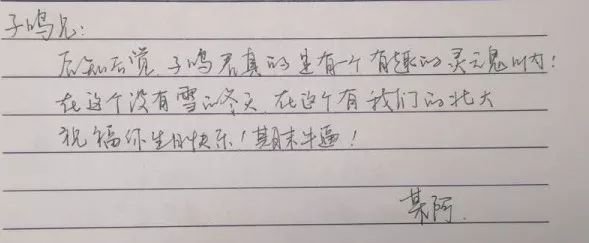 子鸣兄：
后知后觉，子鸣君真的是有一个有趣的灵魂呐！
在这个没有雪的冬天，在这个有我们的北大
祝福你生日快乐！期末牛逼！
某阿.